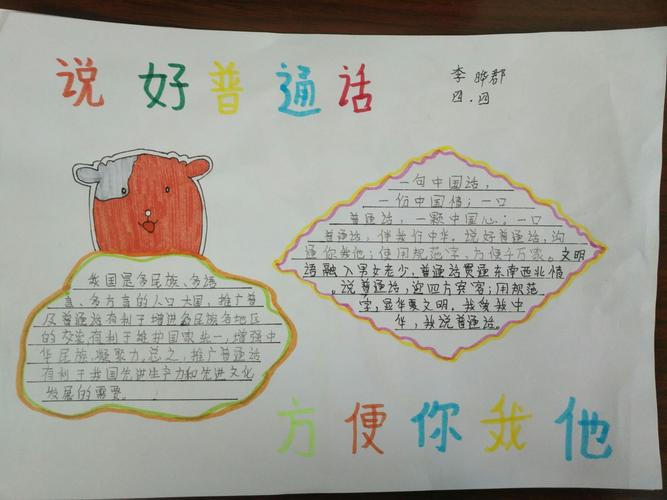 说好普通话
李晔郡
四.四
一句中国话，
一份中国情；一口
普通话，一颗中国心；一口
普通话，伴我行中华。说好普通话，沟
通你我他；使用规范字，方便千万家。文明
语融入男女老少，普通话贯通东南西北情
。说普通话，迎四方宾客；用规范
字，显华夏文明。我爱我中
华，我说普通话。
我国是多民族、多语
言、多方言的人口大国，推广普
及普通话有利于增进各民族各地区
的交流有利于维护国家统一，增强中
华民族凝聚力。总之，推广普通话
有利于我国先进生产力和先进文化
发展的需要。
方便你我他